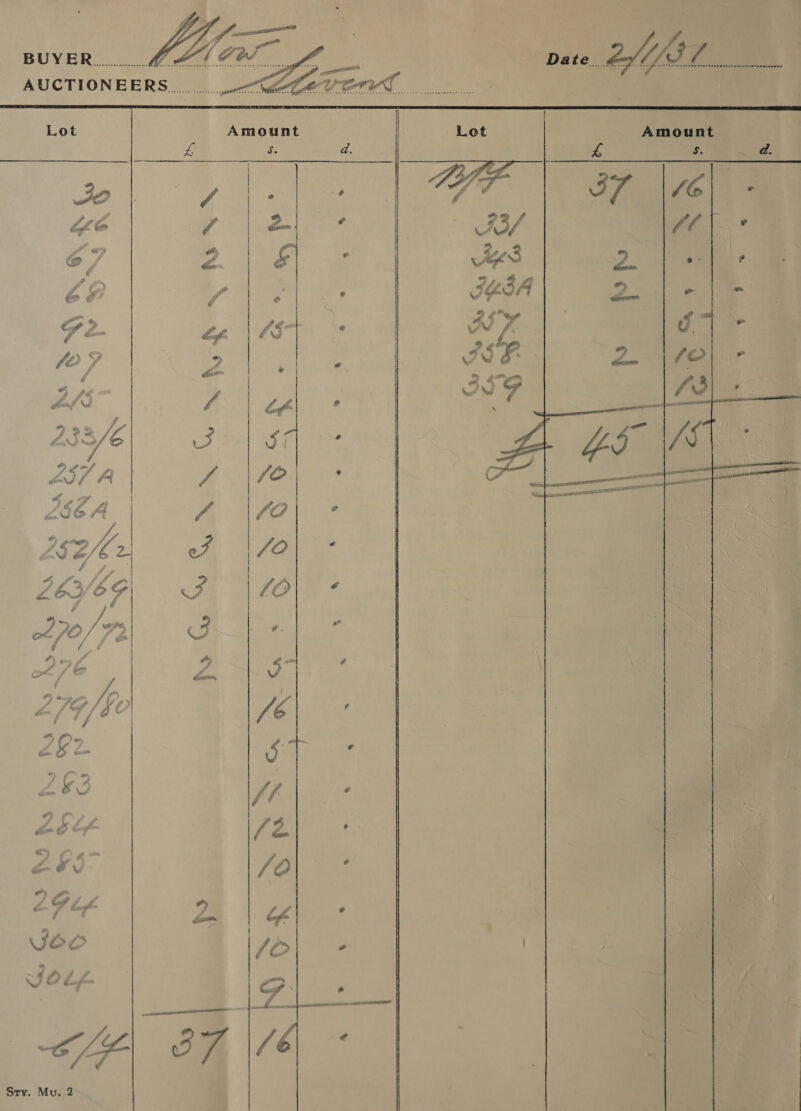 BUYER
Date 2/1/31
AUCTIONEERS Stevens
Lot Amount Lot Amount
£ s. d. £ s. d.
30 1 . . B/F 37 16 .
46 1 2 . 331 11 .
67 2 8 . 343 2 . .
68 1 . . 343A 2 - -
92 4 15 . 357 5 -
107 2 . . 358 2 10 -
215 1 4 . 359 13 .
233/6 3 5 . £ 45 15 .
251A 1 10 .
256A 1 10 .
252/62 3 10 .
263/69 3 10 .
270/72 3 . .
276 2 5 .
279/80 16 .
282 5 .
283 11 .
284 12 .
285 10 .
294 2 4 .
300 10 .
304 9 .
C/F 37 16 .
Sty. Mu. 2